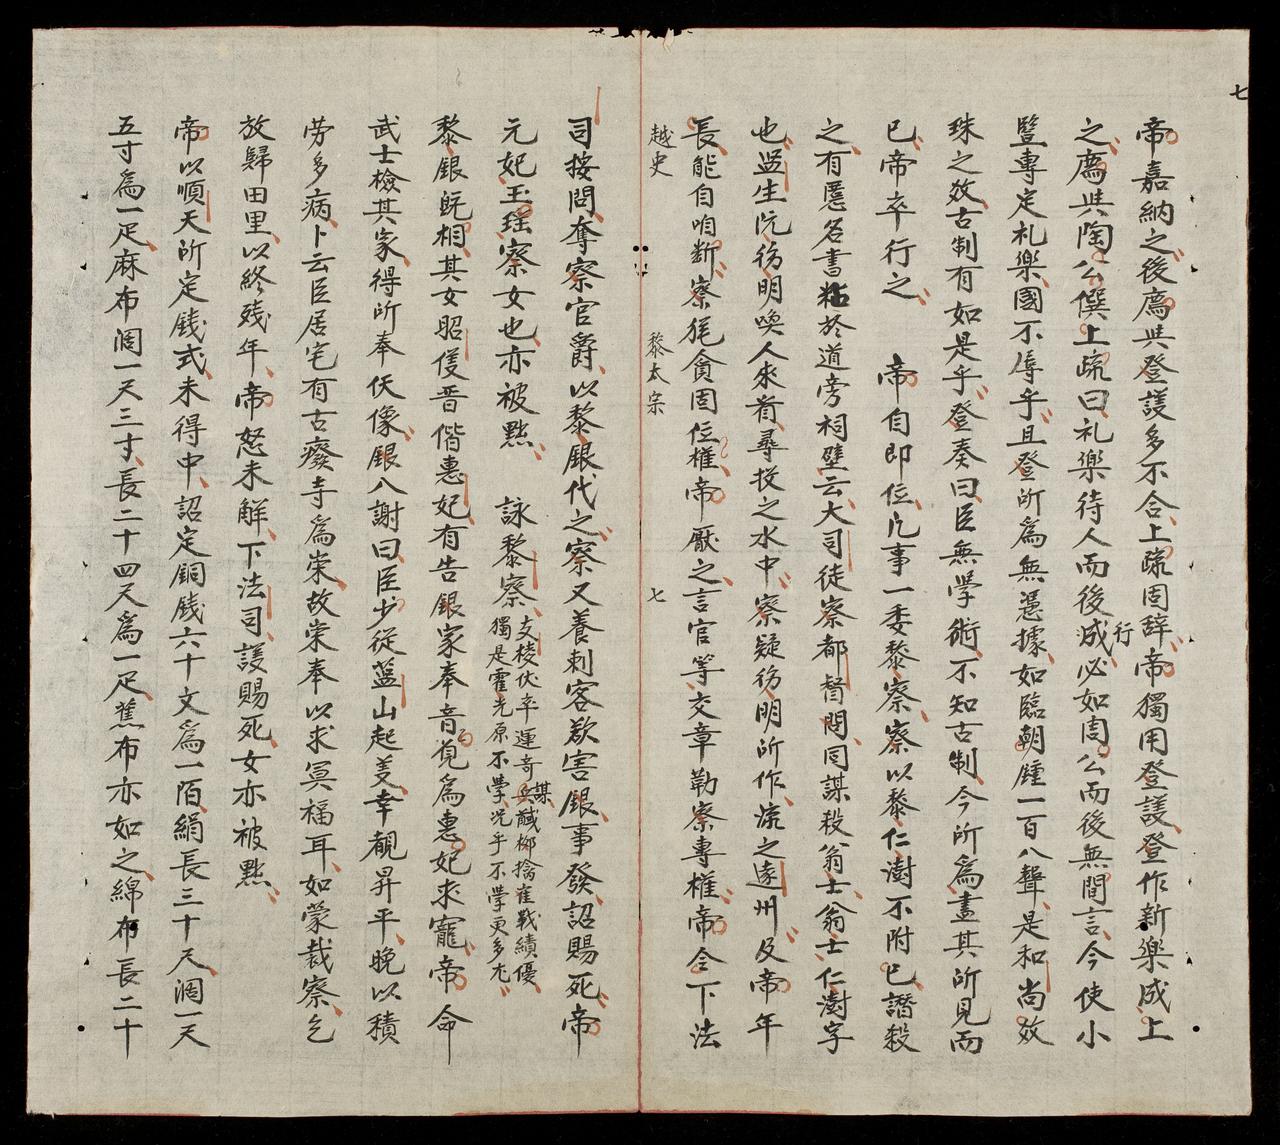 七
帝嘉納之後廌與登議多不合上疏固辞帝獨用登議登作新樂成上
之廌與陶公僎上疏曰礼樂待人而後行成必如周公而後無間言今使小
豎專定礼樂國不辱乎且登所為無憑據如臨朝鍾一百八聲是和尚效
珠之效古制有如是乎登奏曰臣無学術不知古制今所為盡其所見而
已帝卒行之 帝自即位凡事一委黎察察以黎仁澍不附已譖殺
之有匿名書粘於道旁祠壁云大司徒察都督問同謀殺翁士翁士仁澍字
也監生阮彷明喚人來看尋投之水中察疑彷明所作流之遠州及帝年
長能自咱断察猶貪固位權帝厭之言官等交章劾察專權帝令下法
越史 黎太宗 七
司按問奪察官爵以黎銀代之察又養刺客欲害銀事發詔賜死帝
元妃玉瑶察女也亦被黜 詠黎察支棱伏卒運奇謀兵馘栁擒崔戰績優
獨是霍光原不學况乎不學更多尤
黎銀既相其女昭儀晋偕惠妃有告銀家奉音覓為惠妃求寵帝命
武士檢其家得所奉佛像銀入謝曰臣少從藍山起義幸覩昇平晚以積
労多病卜云臣居宅有古癈寺為祟故崇奉以求冥福耳如蒙裁察乞
放歸田里以終残年帝怒未解下法司議賜死女亦被黜
帝以順天所定錢式未得中詔定銅錢六十文為一陌絹長三十尺濶一尺
五寸為一疋麻布濶一尺三寸長二十四尺為一疋蕉布亦如之綿布長二十